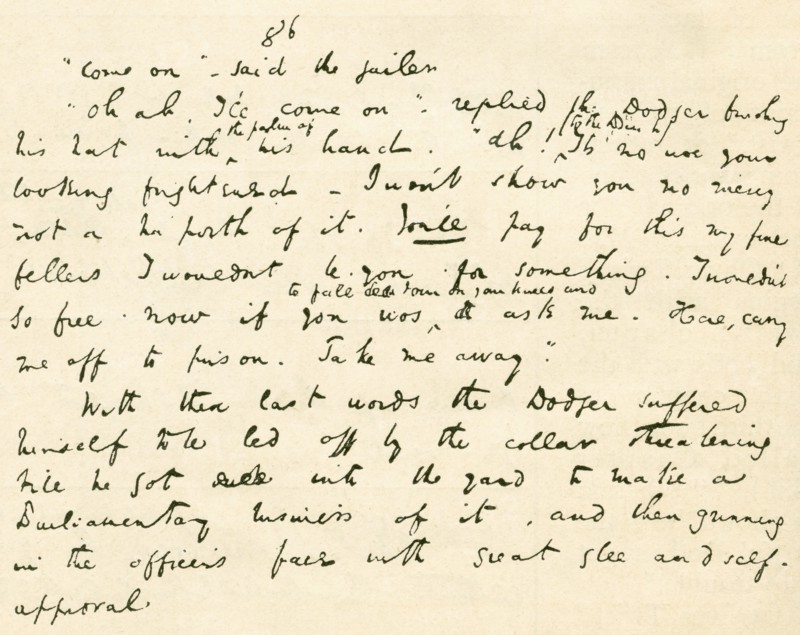 86
"Come on" - said the jailer
"Oh ah, I'll come on" - replied the Dodger brushing
the palm of (to the Bench)
his hat with his hand. "Ah! It's no use your
looking frightened - I won't show you no mercy
not a ha'porth of it. You'll pay for this my fine
fellers I wouldn't be you for something. I wouldn't
to fall down on your knees and
go free now if you wos, ask me. Here, carry
me off to prison. Take me away".
With these last words the Dodger suffered
himself to be led off by the collar threatening
till he got into the yard to make a
Parliamentary business of it, and then grinning
in the officer's face with great glee and self-
approval.